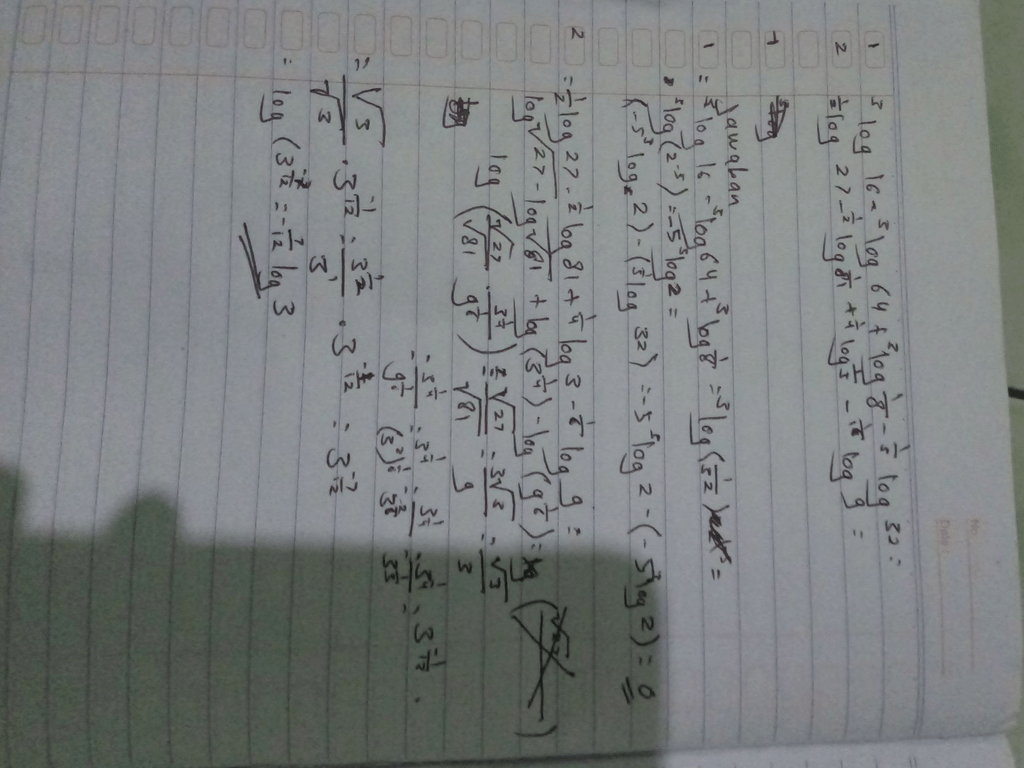 No.
Date
1 ³log 16 - ⁵log 64 + ²log 1/8 - 1/5 log 32 =
2 1/2 log 27 - 1/2 log 81 + 1/4 log 3 - 1/6 log 9 =
1
Jawaban
1 = ³log 16 - ⁵log 64 + ³log 1/8 = ³log (1/32) =
⁵log (2⁻⁵) = -5 ³log 2 =
(-5 ³log 2) - (1/5 log 32) = -5 ⁵log 2 - (-5 ³log 2) = 0
2 = 1/2 log 27 - 1/2 log 81 + 1/4 log 3 - 1/6 log 9 =
log √27 - log √81 + log (3^1/4) - log (9^1/6) =
log (√27/√81 · 3^1/4/9^1/6) = √27/√81 = 3√3/9 = √3/3
= 3^1/4/9^1/6 = 3^1/4/(3²)^1/6 = 3^1/4/3^2/6 = 3^1/4/3^1/3 = 3^-1/12
= √3/3 · 3^-1/12 = 3^1/2/3¹ · 3^-1/12 = 3^-7/12
= log (3^-7/12) = -7/12 log 3